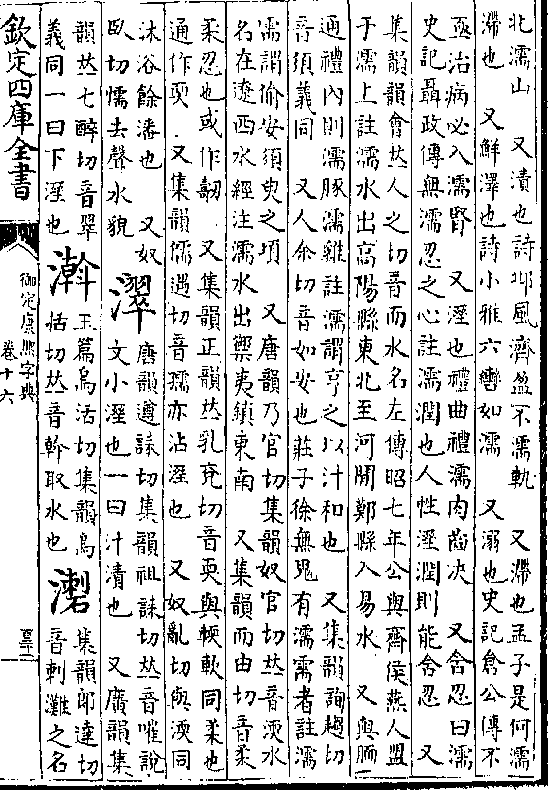 北濡山　又漬也詩邶風濟盈不濡軌　又滯也孟子是何濡
滯也　又鮮澤也詩小雅六轡如濡　又溺也史記倉公傳不
亟治病必入濡腎　又溼也禮曲禮濡肉齒決　又含忍曰濡
史記聶政傳無濡忍之心註濡潤也人性溼潤則能含忍　又
集韻韻會𠀤人之切音而水名左傳昭七年公與齊侯燕人盟
于濡上註濡水出高陽縣東北至河閒鄚縣入易水　又與胹
通禮內則濡豚濡雞註濡謂亨之以汁和也　又集韻詢趨切
音須義同　又人余切音如安也莊子徐無鬼有濡需者註濡
需謂偷安須臾之頃　又唐韻乃官切集韻奴官切𠀤音渜水
名在遼西水經注濡水出禦夷鎮東南　又集韻而由切音柔
柔忍也或作韌　又集韻正韻𠀤乳兖切音耎與輭軟同柔也
通作耎　又集韻儒遇切音孺亦沾溼也　又奴亂切與渜同
沐浴餘潘也　又奴
臥切懦去聲水貌
濢
唐韻遵誄切集韻祖誄切𠀤音嗺說
文小溼也一曰汁漬也　又廣韻集
韻𠀤七醉切音翠
義同一曰下溼也
濣
玉篇烏活切集韻烏
括切𠀤音斡取水也
濌
集韻郎達切
音剌灘之名
欽定四庫全書
御定康熙字典
卷十六